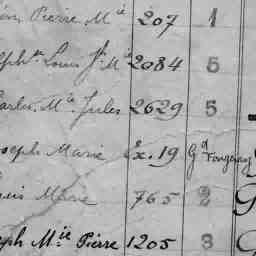 Pierre M.ie 207 1
Louis J.h M.ie 2084 5
Charles M.ie Jules 2629 5
Joseph Marie Ex. 19 G.d Fougeray
Louis Marie 765 2 G
Joseph M.ie Pierre 1205 3